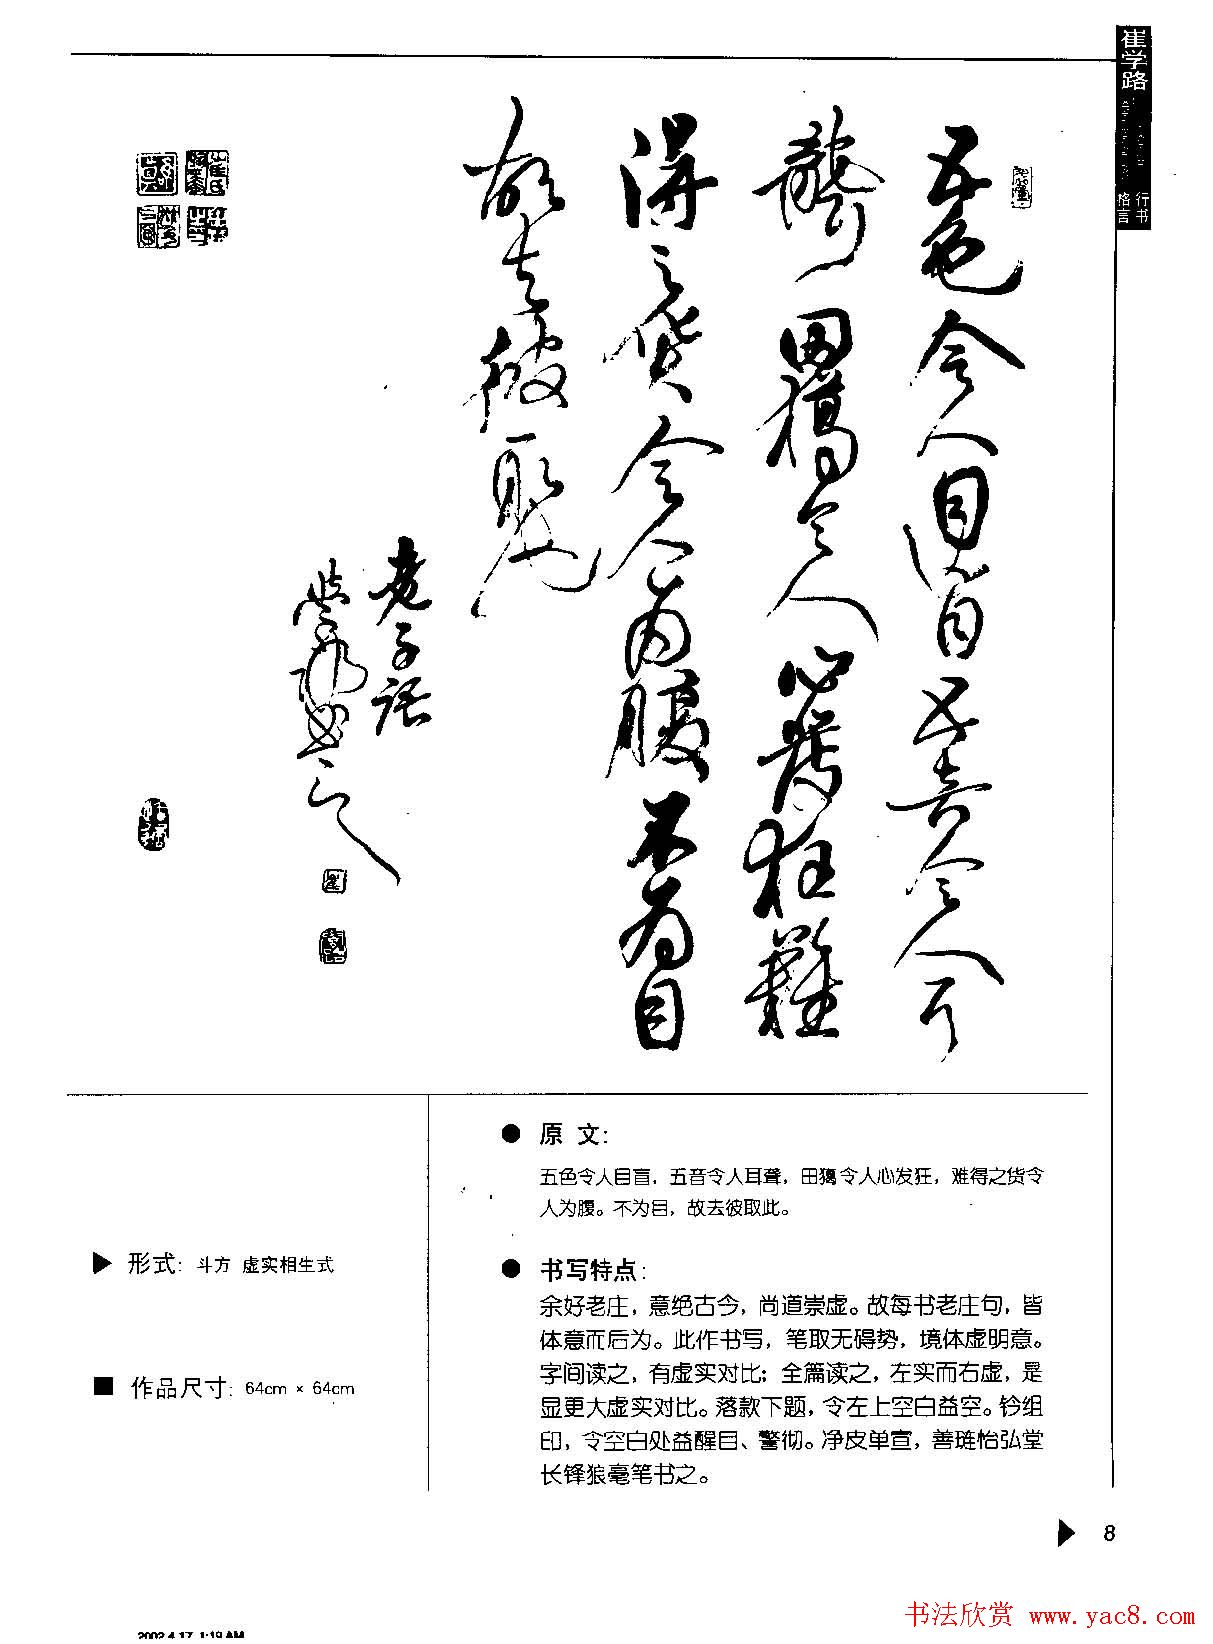 崔学路
行书
格言
五色令人目盲五音令人耳
聾田獦令人心發狂難
得之货令人为腹不为目
故去彼取此
老子语
● 原 文：
五色令人目盲，五音令人耳聋，田獦令人心发狂，难得之货令
人为腹。不为目，故去彼取此。
▶ 形式：斗方 虚实相生式
■ 作品尺寸：64cm × 64cm
● 书写特点：
余好老庄，意绝古今，尚道崇虚。故每书老庄句，皆
体意而后为。此作书写，笔取无碍势，境体虚明意。
字间读之，有虚实对比；全篇读之，左实而右虚，是
显更大虚实对比。落款下题，令左上空白益空。钤组
印，令空白处益醒目、警彻。净皮单宣，善琏怡弘堂
长锋狼毫笔书之。
▶ 8
书法欣赏 www.yac8.com
2002.4.17, 1:19 AM